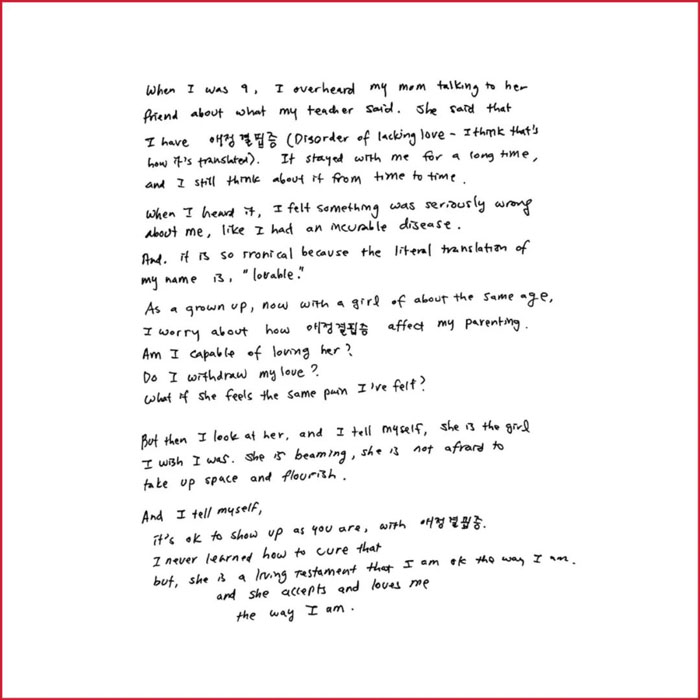 When I was 9, I overheard my mom talking to her
friend about what my teacher said. She said that
I have 애정결핍증 (Disorder of lacking love - I think that's
how it's translated). It stayed with me for a long time,
and I still think about it from time to time.
When I heard it, I felt something was seriously wrong
about me, like I had an incurable disease.
And, it is so ironical because the literal translation of
my name is, "lovable."
As a grown up, now with a girl of about the same age,
I worry about how 애정결핍증 affect my parenting.
Am I capable of loving her?
Do I withdraw my love?
What if she feels the same pain I've felt?
But then I look at her, and I tell myself, she is the girl
I wish I was. She is beaming, she is not afraid to
take up space and flourish.
And I tell myself,
it's ok to show up as you are, with 애정결핍증.
I never learned how to cure that
but, she is a living testament that I am ok the way I am.
and she accepts and loves me
the way I am.